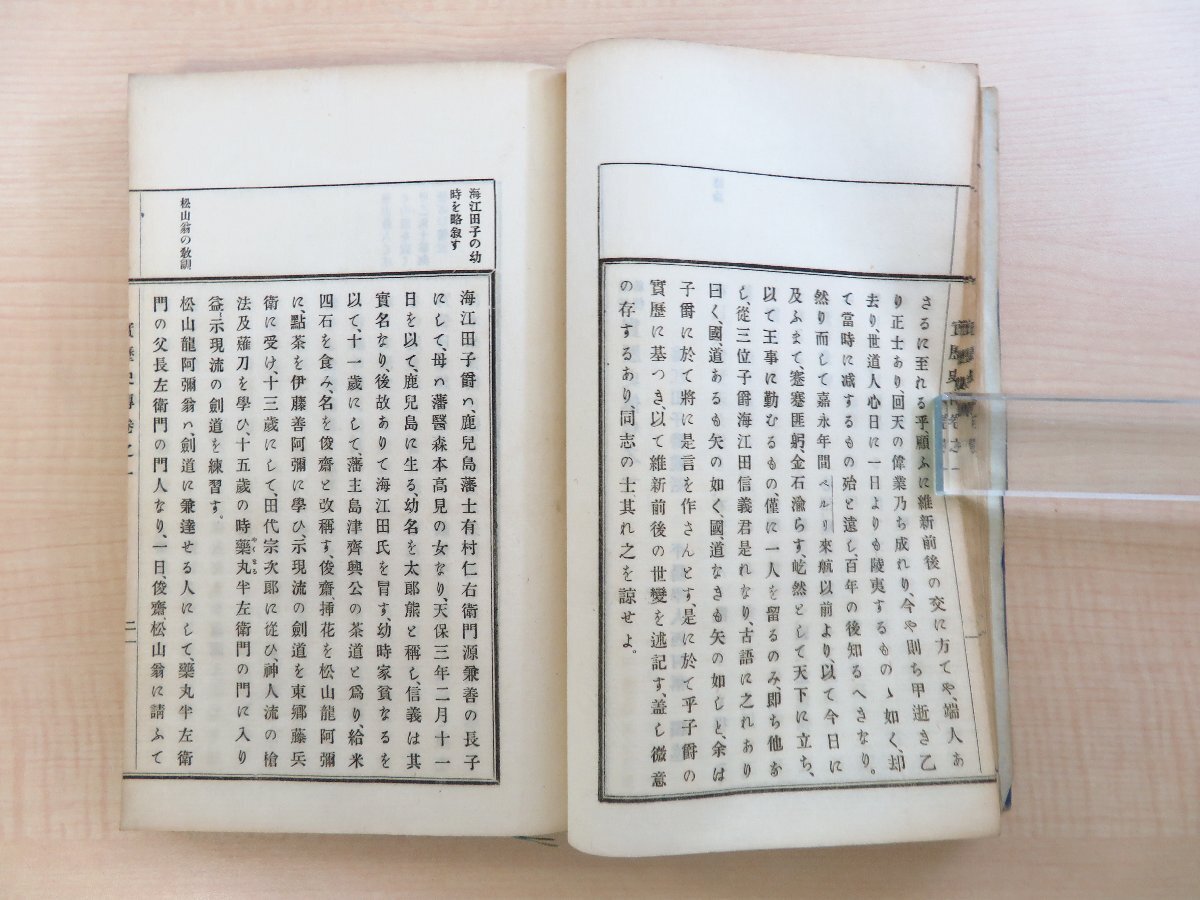 さるに至れる乎、顧ふに維新前後の交に方てや、端人あ
り正士あり、回天の偉業乃ち成れり、今や則ち甲逝き乙
去り、世道人心日に一日よりも陵夷するものゝ如く、却
て當時に减するもの殆と遠し、百年の後知るへきなり。
然り而して嘉永年間ペルリ來航以前より、以て今日に
及ふまて、蹇蹇匪躬、金石渝らす、屹然として天下に立ち、
以て王事に勤むるもの、僅に一人を留るのみ、即ち他な
し、從三位子爵海江田信義君是れなり、古語に之れあり
曰く、國、道あるも矢の如く、國、道なきも矢の如しと、余は
子爵に於て將に是言を作さんとす、是に於て乎子爵の
實歷に基つき、以て維新前後の世變を述記す、蓋し微意
の存するあり、同志の士其れ之を諒せよ。
海江田子の幼
時を略敘す
海江田子爵ハ、鹿兒島藩士有村仁右衛門源兼善の長子
にして、母ハ藩醫森本高見の女なり、天保三年二月十一
日を以て、鹿兒島に生る、幼名を太郎熊と稱し、信義は其
實名なり、後故ありて海江田氏を冒す、幼時家貧なるを
以て、十一歲にして、藩主島津齊興公の茶道と爲り、給米
四石を食み、名を俊齋と改稱す、俊齋、挿花を松山龍阿彌
に、點茶を伊藤善阿彌に學ひ、示現流の劍道を東鄕藤兵
衛に受け、十三歲にして、田代宗次郎に從ひ、神人流の槍
法及薙刀を學ひ、十五歲の時藥丸半左衛門の門に入り
やくまる
益示現流の劍道を練習す。
松山翁の敎訓
松山龍阿彌翁ハ、劍道に兼達せる人にして、藥丸半左衛
門の父長左衛門の門人なり、一日、俊齋松山翁に請ふて
實歷史傳卷之一
二